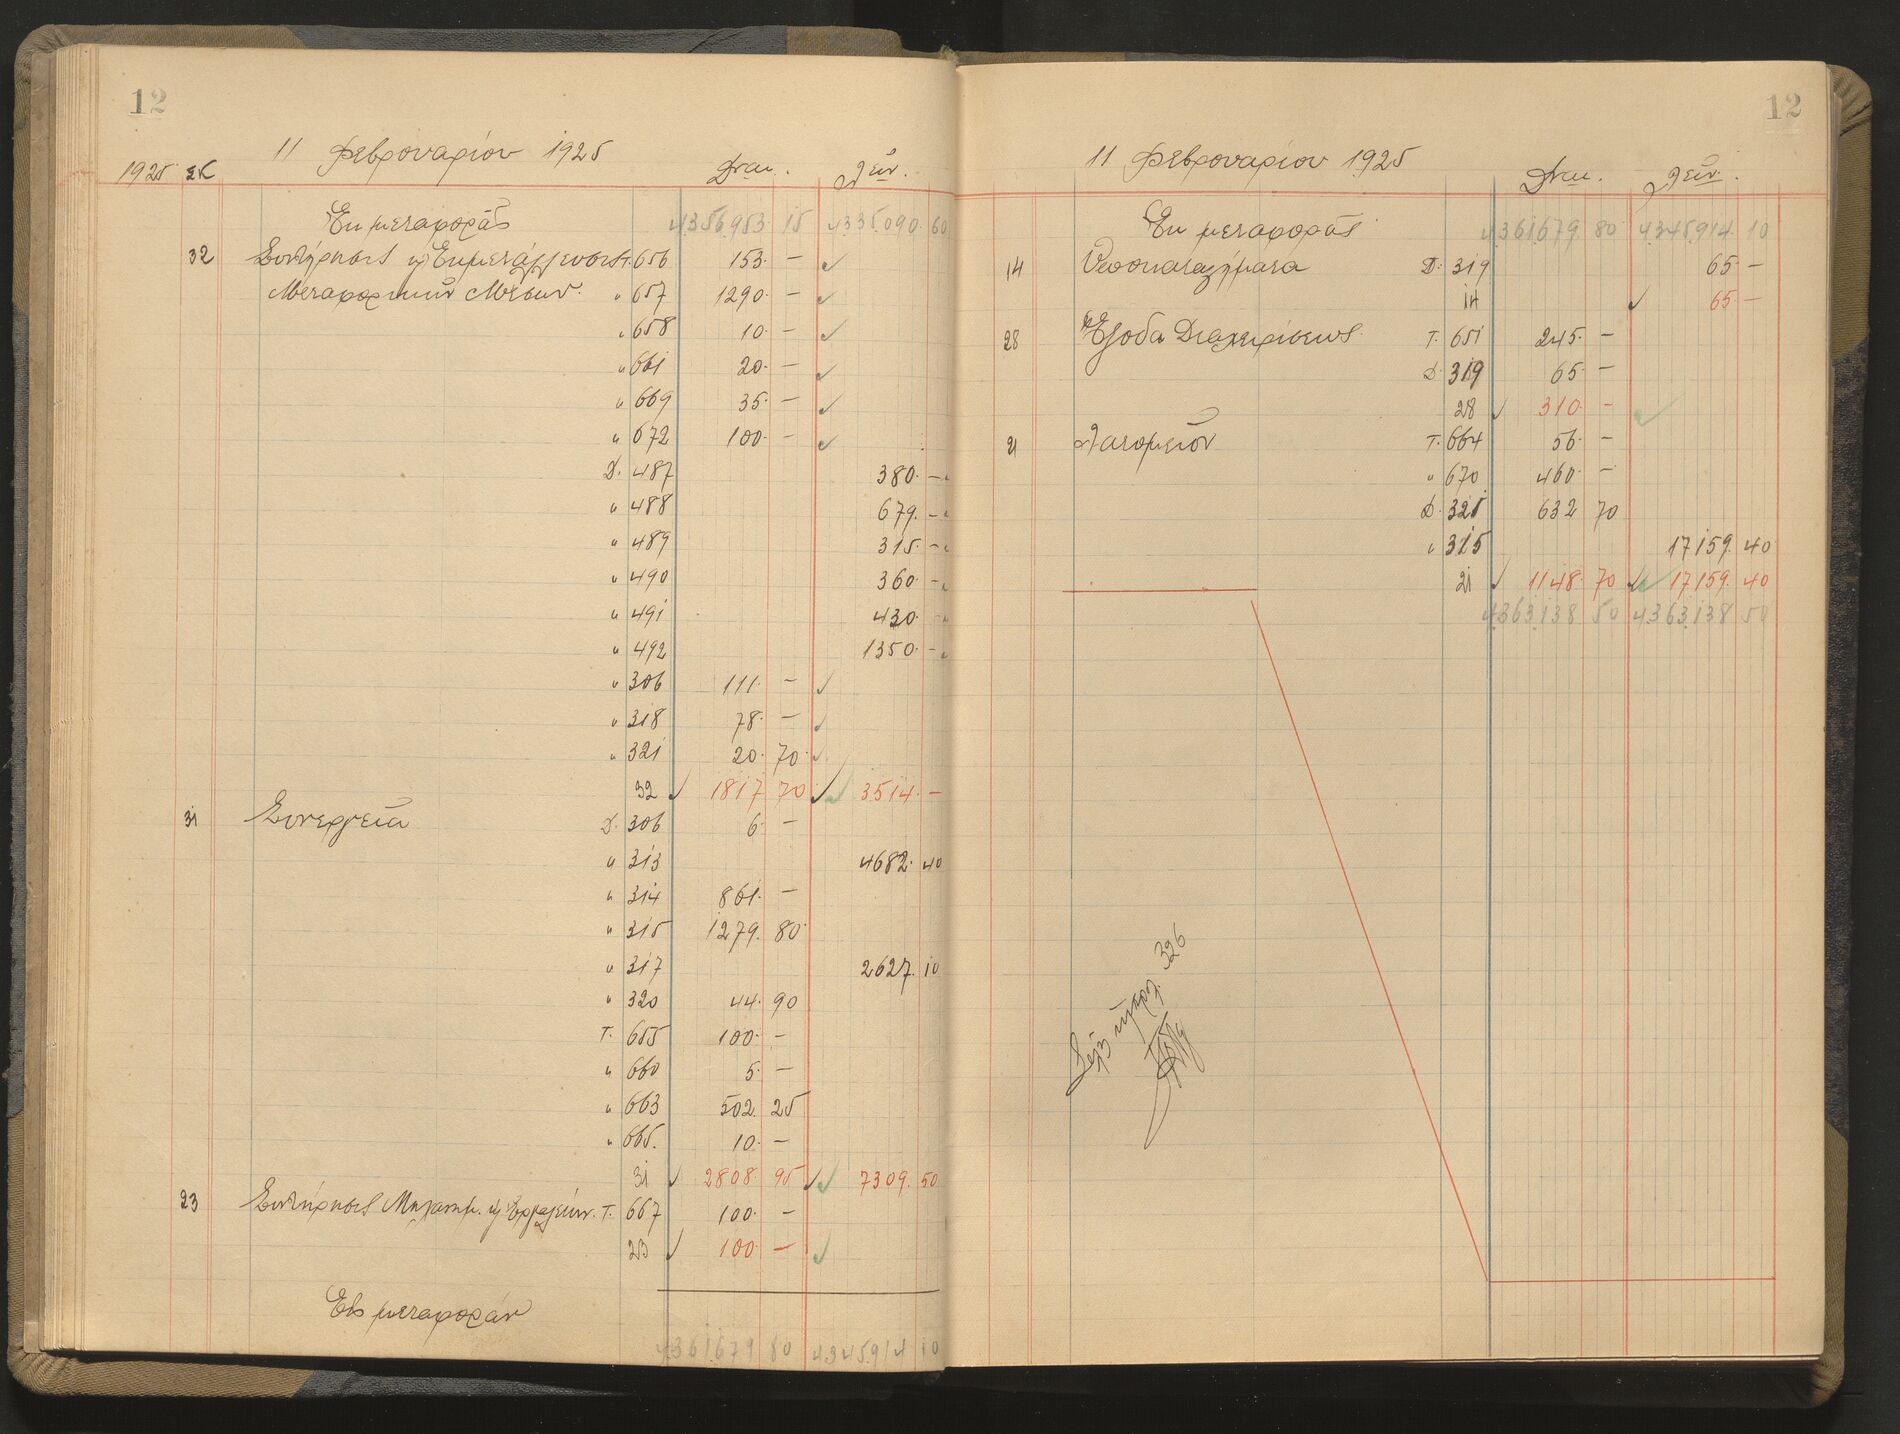 12
11 Φεβρουαρίου 1925
1925 ΣΚ Δραχ. Λεπτ.
Ἐκ μεταφορᾶς 4.356.953. 15 4.335.090. 60
32 Συντήρησις κ Ἐκμετάλλευσις Τ. 656 153. —
Μεταφορικῶν Μέσων. " 657 1290. —
" 658 10. —
" 661 20. —
" 669 35. —
" 672 100. —
Δ. 487 380. —
" 488 679. —
" 489 315. —
" 490 360. —
" 491 430. —
" 492 1350. —
" 306 111. —
" 318 78. —
" 321 20. 70.
32 1817 70 3514. —
31 Συνεργεῖα Δ. 306 6. —
" 313 4682. 40
" 314 861. —
" 315 1279. 80
" 317 2627. 10
" 320 44. 90
Τ. 655 100. —
" 660 5. —
" 663 502. 25
" 665. 10. —
31 2808. 95 7309. 50
23 Συντήρησις Μηχανημ. κ Ἐργαλείων. Τ. 667 100. —
23 100. —
Εἰς μεταφοράν
4.361.679 80 4.345.914 10
12
11 Φεβρουαρίου 1925
Ἐκ μεταφορᾶς 4.361.679 80 4.345.914. 10
14 Δ. 319 65. —
14 65. —
28 Ἔξοδα Διαχειρίσεως. Τ. 651 245. —
Δ. 319 65. —
28 310. —
21 Λατομεῖον Τ. 664 56. —
" 670 460. —
Δ. 325 632 70
" 315 17159. 40
21 1148. 70 17159. 40
4.363.138 50 4.363.138 50
326